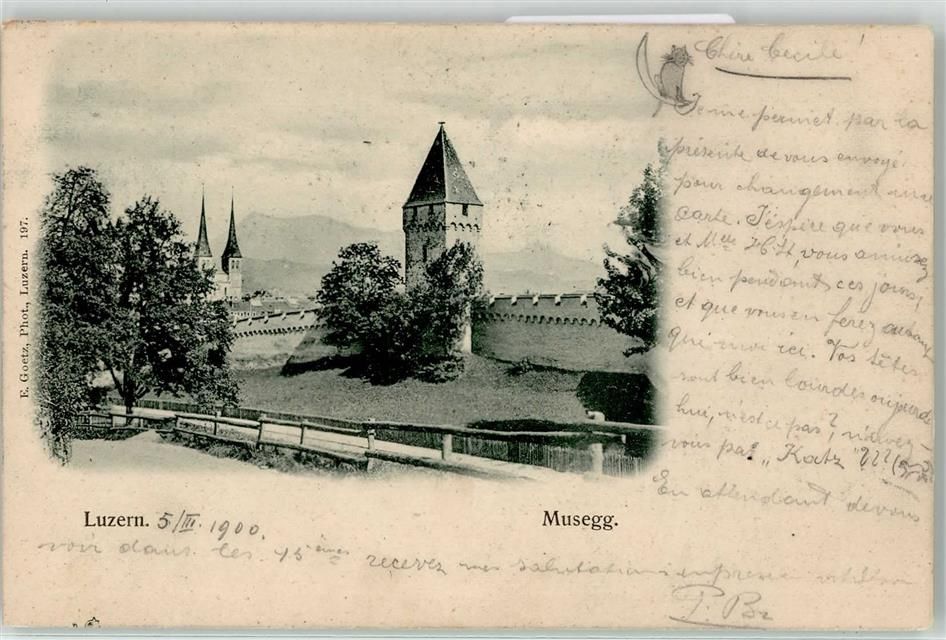 Chère Cecile!
Je me permet par la
présente de vous envoyé
pour changement une
carte. J'éspére que vous
et Mlle vous amusez
bien pendant ces jours,
et que vous en ferez autant
qui moi ici. Vos têtes
sont bien lourdes aujourd
hui, n'est ce pas?, n'avez
vous pas „Katz" ???
En attendant de vous
E. Goetz, Phot., Luzern. 197.
Luzern. 5/III. 1900.
Musegg.
voir dans les 45 èmes recevez mes salutations
P. Br